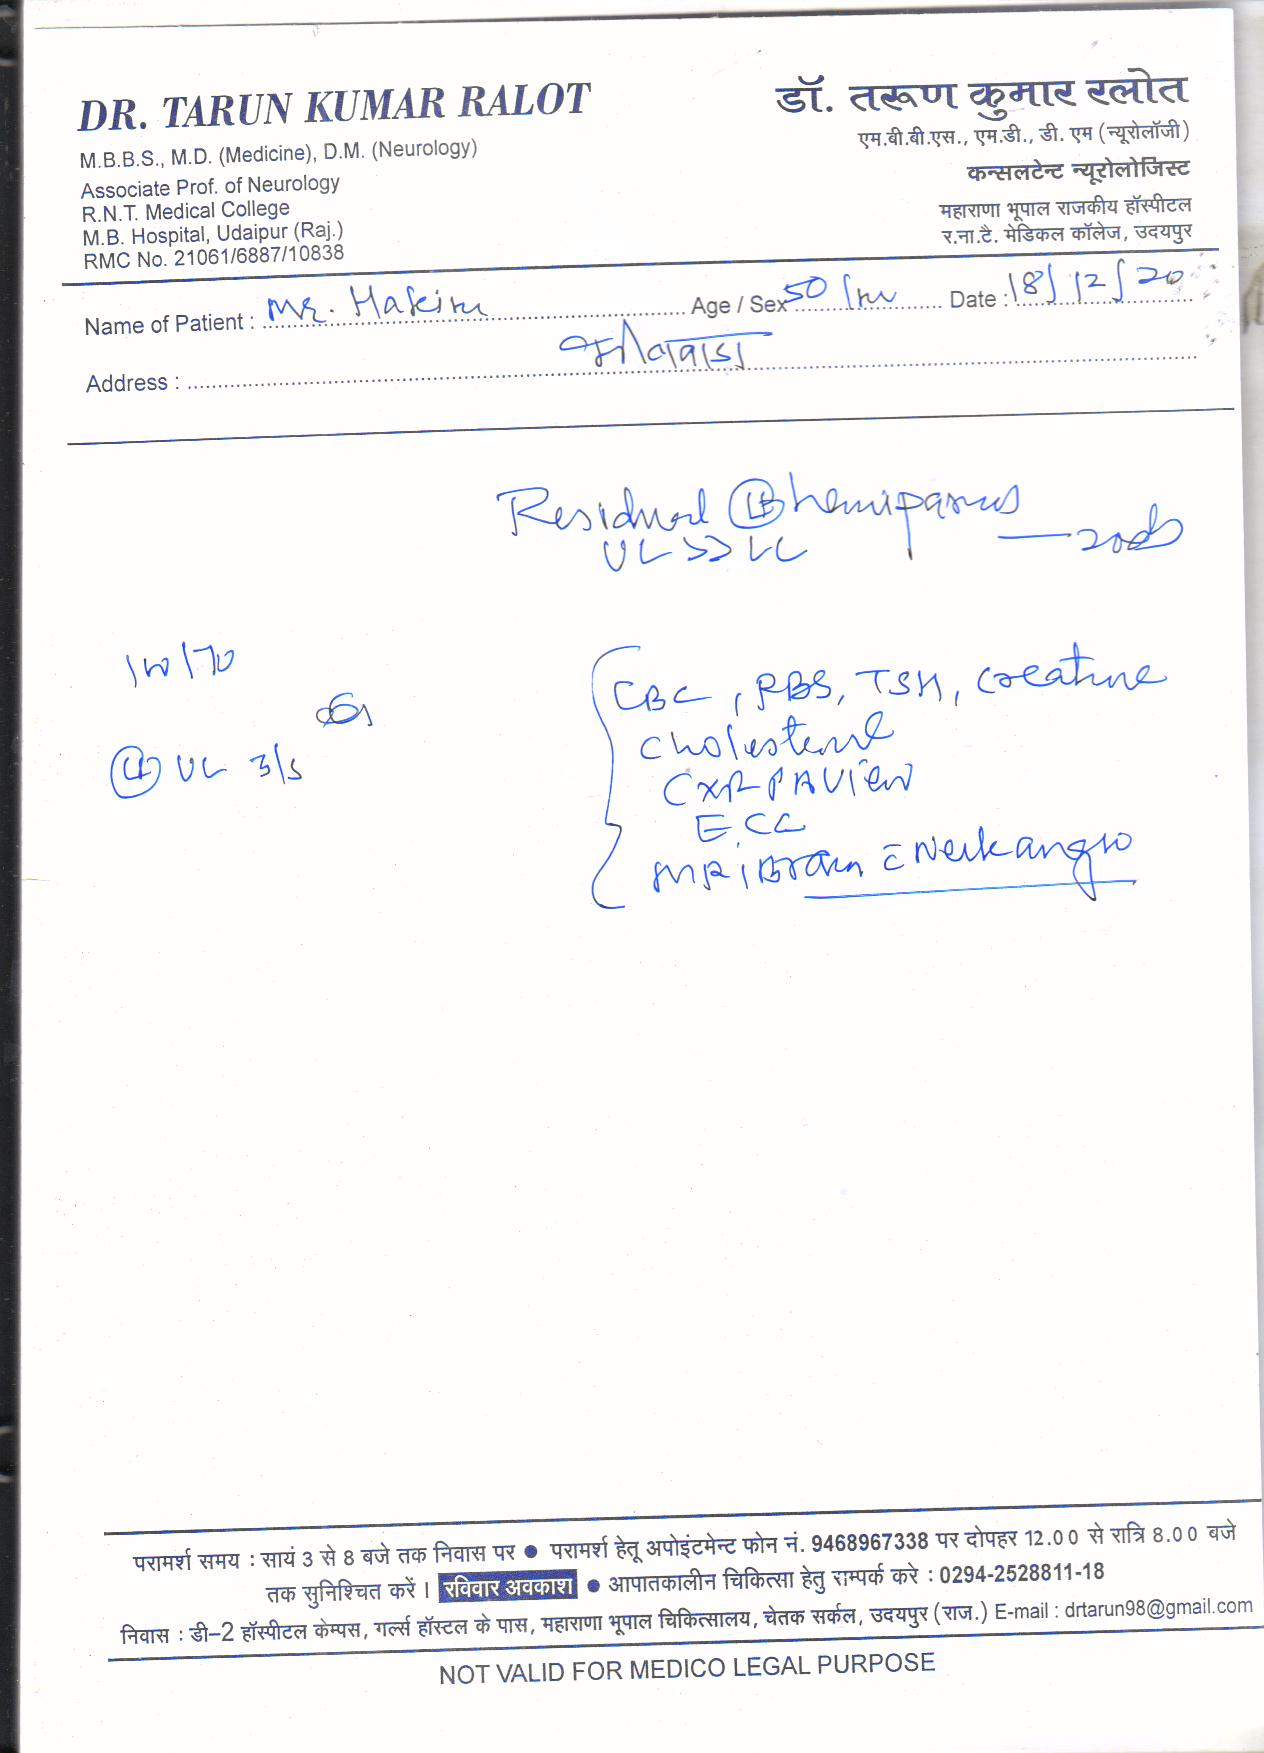 DR. TARUN KUMAR RALOT
M.B.B.S., M.D. (Medicine), D.M. (Neurology)
Associate Prof. of Neurology
R.N.T. Medical College
M.B. Hospital, Udaipur (Raj.)
RMC No. 21061/6887/10838
डॉ. तरूण कुमार रलोत
एम.बी.बी.एस., एम.डी., डी. एम (न्यूरोलॉजी)
कन्सलटेन्ट न्यूरोलोजिस्ट
महाराणा भूपाल राजकीय हॉस्पीटल
र.ना.टै. मेडिकल कॉलेज, उदयपुर
Name of Patient : Mr. Hakim Age / Sex 50/m Date : 18/12/20
Address :
Residual Lt hemiparesis
UL >> LL — 20d
Lt UL 3/5
CBC, RBS, TSH, Creatine
Cholesterol
CXR PA View
ECG
MRI Brain c̄ Neck angio
परामर्श समय : सायं 3 से 8 बजे तक निवास पर ● परामर्श हेतू अपोइंटमेन्ट फोन नं. 9468967338 पर दोपहर 12.00 से रात्रि 8.00 बजे
तक सुनिश्चित करें । रविवार अवकाश ● आपातकालीन चिकित्सा हेतु सम्पर्क करे : 0294-2528811-18
निवास : डी–2 हॉस्पीटल केम्पस, गर्ल्स हॉस्टल के पास, महाराणा भूपाल चिकित्सालय, चेतक सर्कल, उदयपुर (राज.) E-mail : drtarun98@gmail.com
NOT VALID FOR MEDICO LEGAL PURPOSE